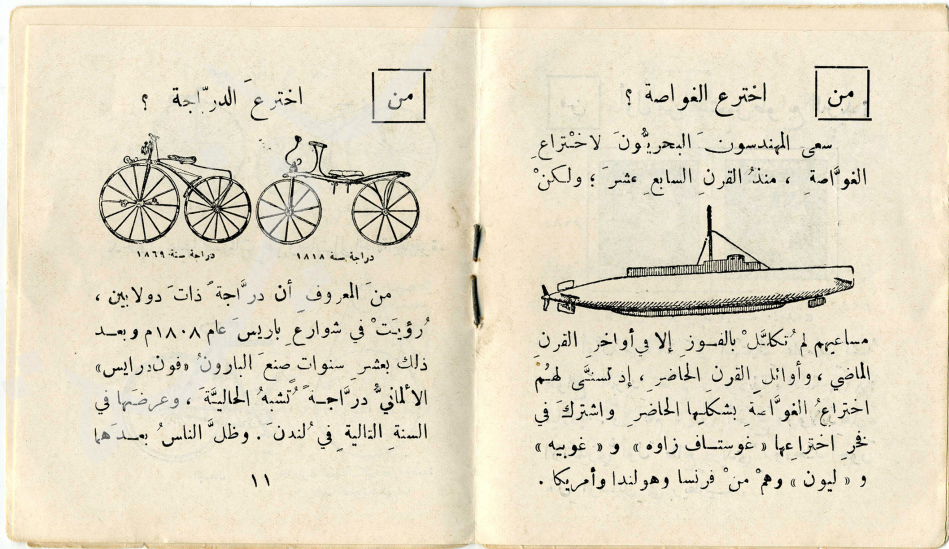 من
اخترع الغواصة ؟
سعى المهندسونَ البحريُّونَ لاختراعِ
الغوَّاصةِ ، منذُ القرنِ السابعِ عشرَ ؛ ولكنْ
مساعيهم لم تُكلَّلْ بالفوزِ إلا في أواخرِ القرنِ
الماضي ، وأوائلِ القرنِ الحاضرِ ، إذ تسنَّى لهُم
اختراعُ الغوَّاصةِ بشكلِها الحاضرِ واشتركَ في
فخرِ اختراعِها « غوستاف زاوه » و « غوبيه »
و « ليون » وهمْ منْ فرنسا وهولندا وأمريكا .
من
اخترعَ الدرّاجة ؟
دراجة سنة ١٨١٨
دراجة سنة ١٨٦٩
منَ المعروفِ أن درَّاجةً ذاتَ دولابين ،
رُؤيَتْ في شوارعِ باريسَ عام ١٨٠٨م وبعد
ذلك بعشرِ سنوات صنعَ البارونُ «فون درايس»
الألمانيُّ درَّاجةً تُشبهُ الحاليَّةَ ، وعرضَها في
السنةِ التاليةِ في لُندنَ . وظلَّ الناسُ بعدَها
١١